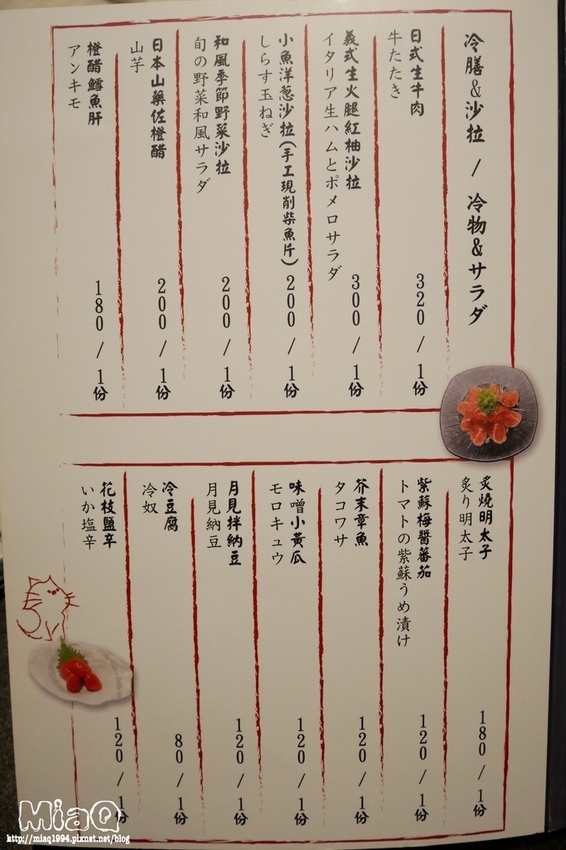 冷膳&沙拉 / 冷物&サラダ
日式生牛肉
牛たたき
320/1份
義式生火腿紅柚沙拉
イタリア生ハムとポメロサラダ
300/1份
小魚洋葱沙拉(手工現削柴魚片)
しらす玉ねぎ
200/1份
和風季節野菜沙拉
旬の野菜和風サラダ
200/1份
日本山藥佐橙醋
山芋
200/1份
橙醋鱈魚肝
アンキモ
180/1份
炙燒明太子
炙り明太子
180/1份
紫蘇梅醬蕃茄
トマトの紫蘇うめ漬け
120/1份
芥末章魚
タコワサ
120/1份
味噌小黃瓜
モロキュウ
120/1份
月見拌納豆
月見納豆
120/1份
冷豆腐
冷奴
80/1份
花枝鹽辛
いか塩辛
120/1份
MiaQ
http://miaq1994.pixnet.net/blog